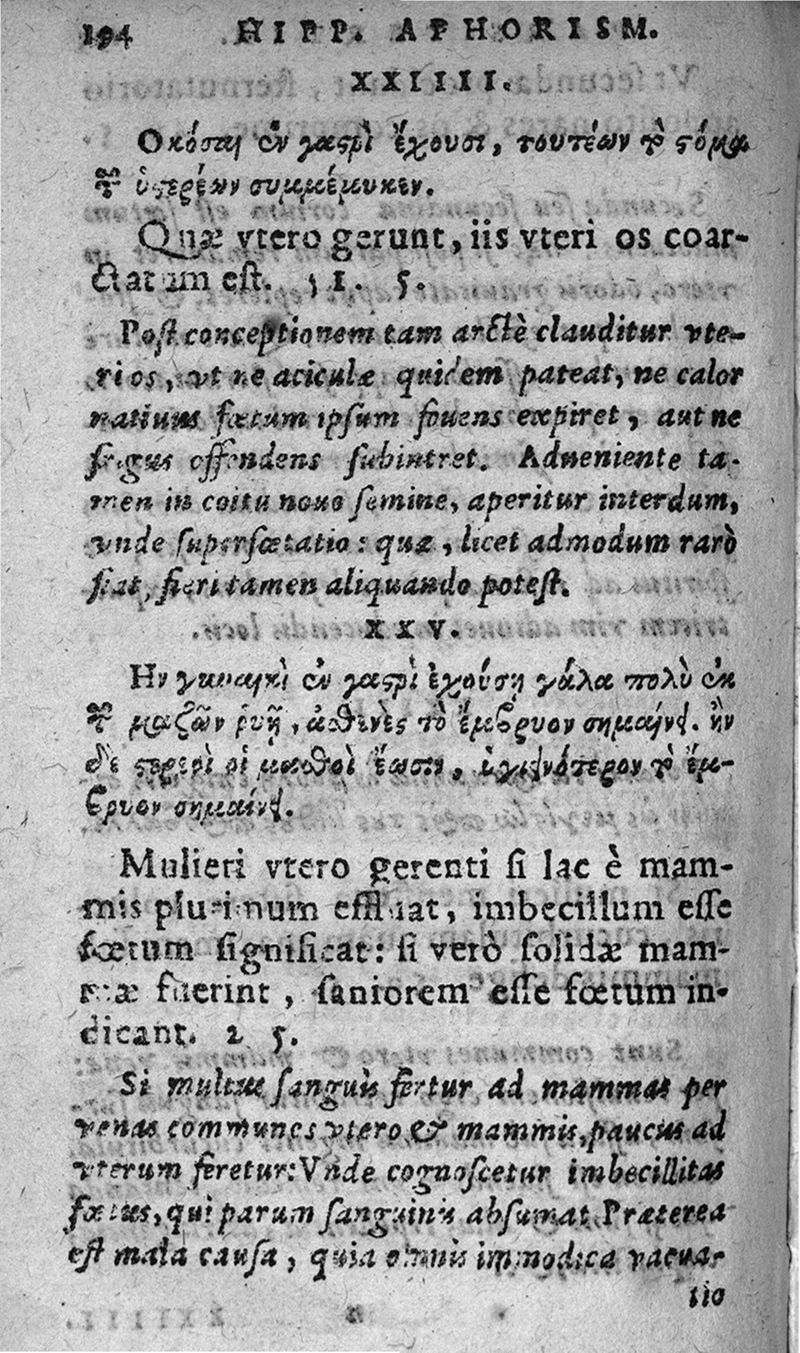 194 HIPP. APHORISM.
XXIIII.
Οκόσαι ἐν γαςρὶ ἔχουσι, τουτέων τὸ ςόμα
τῶν ὑςερέων συμμέμυκεν.
Quæ vtero gerunt, iis vteri os coar-
ctatum est. 51. 5.
Post conceptionem tam arctè clauditur vte-
ri os, vt ne aciculæ quidem pateat, ne calor
natiuus fœtum ipsum fouens expiret, aut ne
frigus offendens subintret. Adueniente ta-
men in coitu nouo semine, aperitur interdum,
vnde superfœtatio: quæ, licet admodum rarò
fiat, fieri tamen aliquando potest.
XXV.
Ην γυναικὶ ἐν γαςρὶ ἐχούσῃ γάλα πολὺ ἐκ
τῶν μαζῶν ῥυῇ, ἀσθενὲς τὸ ἔμβρυον σημαίνει. ἢν
δὲ ςερεοὶ οἱ μασθοὶ ἔωσιν, ὑγιεινότερον τὸ ἔμ-
βρυον σημαίνει.
Mulieri vtero gerenti si lac è mam-
mis plurimum effluat, imbecillum esse
fœtum significat: si verò solidæ mam-
mæ fuerint, saniorem esse fœtum in-
dicant. 2 5.
Si multus sanguis fertur ad mammas per
venas communes vtero & mammis, paucus ad
vterum feretur: Vnde cognoscetur imbecillitas
fœtus, qui parum sanguinis absumat. Præterea
est mala causa, quia omnis immodica vacua-
tio